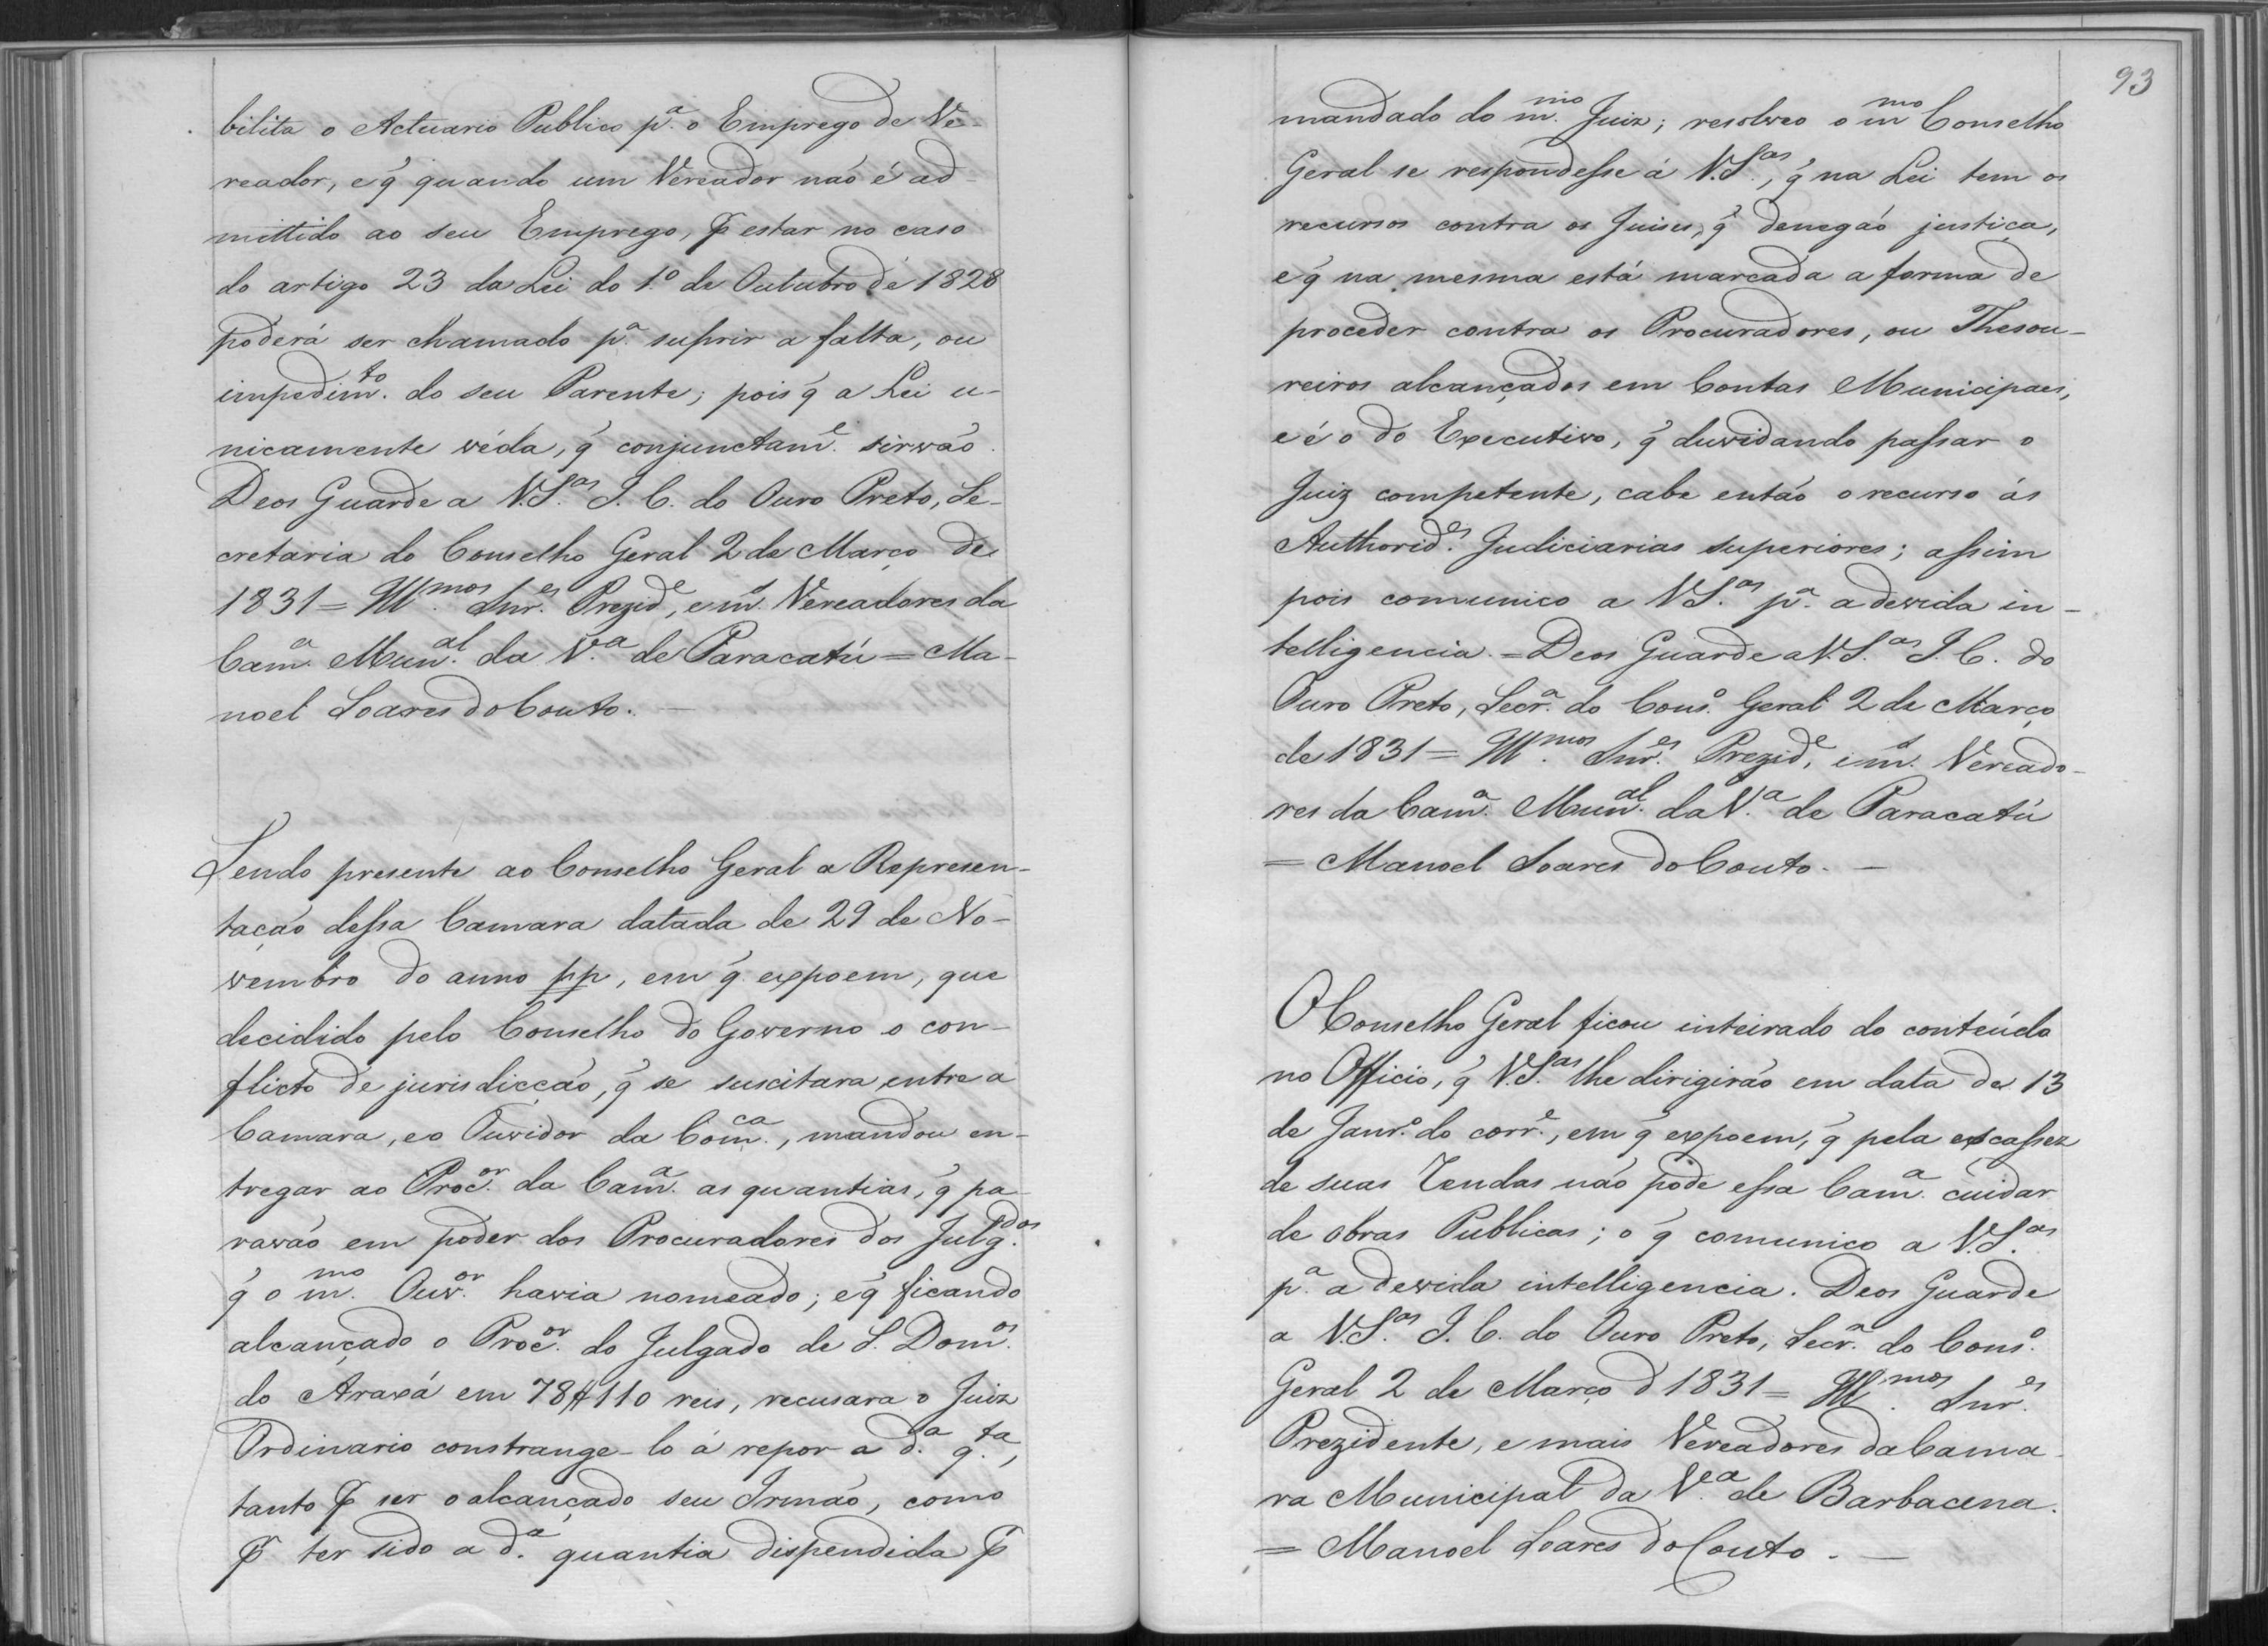 bilita o Actuario Publico p.ª o Emprego de Ve-
reador, e q̃ quando um Vereador naõ é ad-
mittido ao seu Emprego, ꝑ estar no caso
do artigo 23 da Lei do 1.º de Outubro de 1828
poderá ser chamado p.ª suprir a falta, ou
impedim.to do seu Parente; pois q̃ a Lei u-
nicamente véda, q̃ conjunctam.e sirvaõ.
Deos Guarde a V.S.as I. C. do Ouro Preto, Se-
cretaria do Conselho Geral 2 de Março de
1831 = Ill.mos Snr.es Prezid.e, e m.s Vereadores da
Cam.a Mun.al da V.a de Paracatú = Ma-
noel Soares do Couto. —
Sendo presente ao Conselho Geral a Represen-
taçaõ dessa Camara datada de 29 de No-
vembro do anno pp, em q̃ expoem, que
decidido pelo Conselho do Governo o con-
flicto de jurisdicçaõ, q̃ se suscitara entre a
Camara, e o Ouvidor da Com.ca, mandou en-
tregar ao Proc.or da Cam.a as quantias, q̃ pa-
ravaõ em poder dos Procuradores dos Julg.dos
q̃ o m.mo Ouv.or havia nomeado; e q̃ ficando
alcançado o Proc.or do Julgado de S. Dom.os
do Araxá em 78$110 reis, recusara o Juiz
Ordinario constrange-lo á repor a d.a q.ta,
tanto ꝑ ser o alcançado seu Irmaõ, como
ꝑ ter sido a d.a quantia dispendida ꝑ
93
mandado do m.mo Juiz; resolveo o m.mo Conselho
Geral se respondesse á V.S.as, q̃ na Lei tem os
recursos contra os Juises, q̃ denegaõ justiça,
e q̃ na mesma está marcada a forma de
proceder contra os Procuradores, ou Thesou-
reiros alcançados em Contas Municipaes,
e é o do Executivo, q̃ duvidando passar o
Juiz competente, cabe entaõ o recurso ás
Authorid.es Judiciarias superiores; assim
pois comunico a V.S.as p.ª a devida in-
telligencia. = Deos Guarde a V.S.as I. C. do
Ouro Preto, Secr.a do Cons.o Geral 2 de Março
de 1831 = Ill.mos Snr.es Prezid.e, e m.s Vereado-
res da Cam.a Mun.al da V.a de Paracatú
= Manoel Soares do Couto. —
O Conselho Geral ficou inteirado do conteúdo
no Officio, q̃ V.S.as lhe dirigiraõ em data de 13
de Janr.o do corr.e, em q̃ expoem, q̃ pela escassez
de suas Rendas naõ póde essa Cam.a cuidar
de obras Publicas; o q̃ comunico a V.S.as
p.ª a devida intelligencia. Deos Guarde
a V.S.as I. C. do Ouro Preto, Secr.a do Cons.o
Geral 2 de Março d 1831 = Ill.mos Snr.es
Prezidente, e mais Vereadores da Cama-
ra Municipal da V.a de Barbacena.
= Manoel Soares do Couto. —